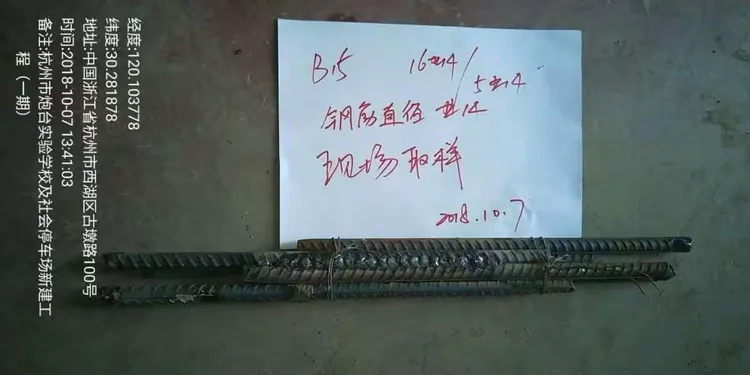 经度:120.103778
纬度:30.281878
地址:中国浙江省杭州市西湖区古墩路100号
时间:2018-10-07 13:41:03
备注:杭州市炮台实验学校及社会停车场新建工
程(一期)
B15 16⌀14/5⌀14
钢筋直径 ⌀14
现场取样
2018.10.7